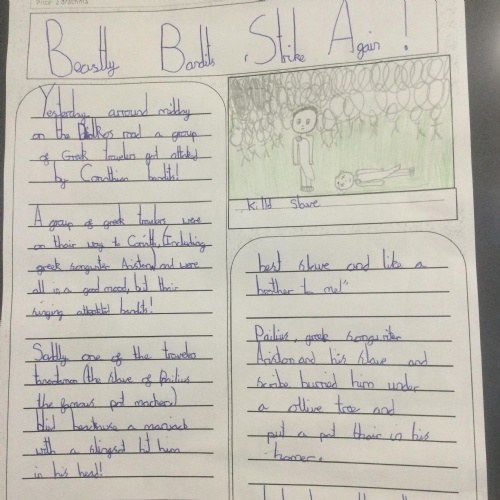 Beastly Bandits Strike Again!
Yesterday, arround midday
on the road a group
of Greek travelers got attacked
by Corinthian bandits!
A group of greek travelers were
on their way to Corinth, (Including
greek songwriter Ariston) and were
all in a good mood, but their
singing attackted bandits!
Sadly one of the travelers
(the slave of Pailius
the famous pot
died beachause a maniack
with a slingsot hit him
in his head!
killd slave
best slave and like a
brother to me!"
Pailius, greek songwriter
Ariston and his slave and
scribe burried him under
a ollive tree and
put a pot thair in his
homer.